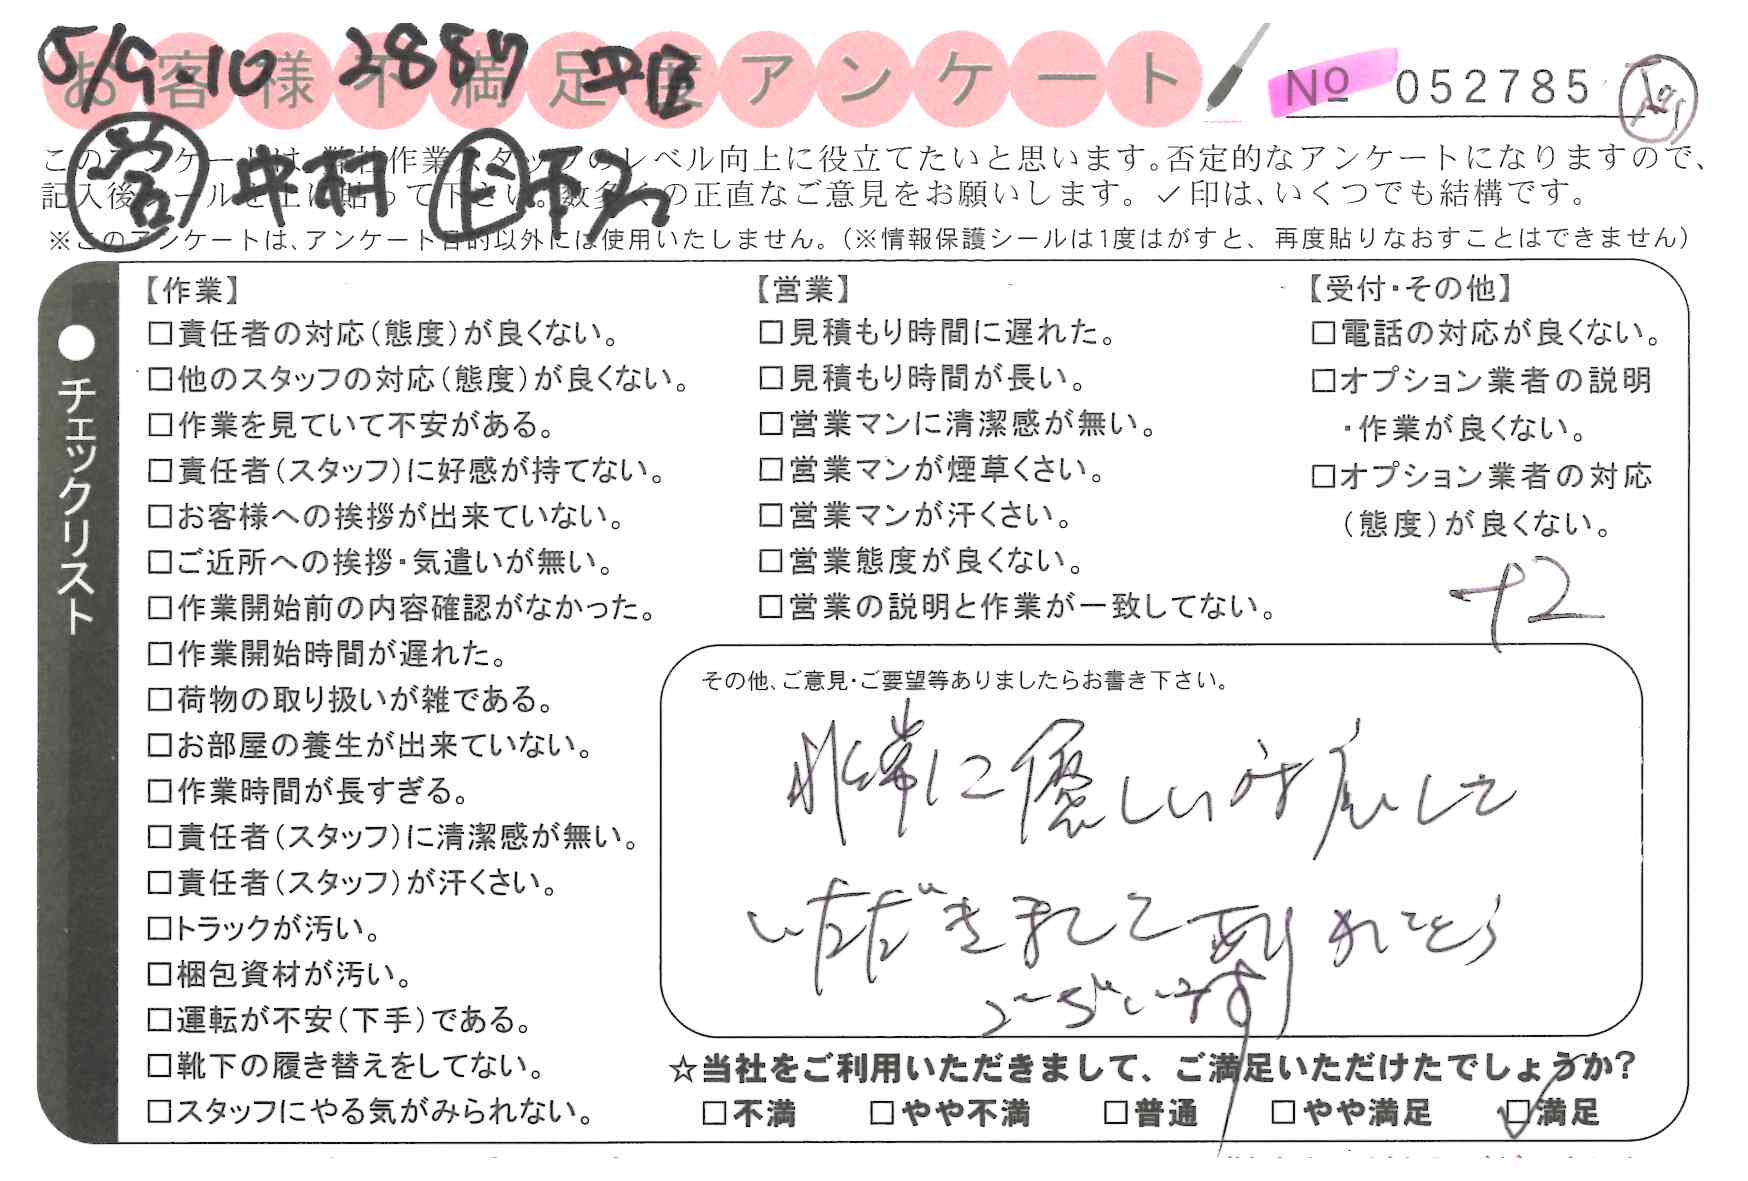 5/9.10 2887
お客様不満足度アンケート
№ 052785
営 中村 上 下
このアンケートは、弊社作業スタッフのレベル向上に役立てたいと思います。否定的なアンケートになりますので、
記入後シールを上に貼って下さい。数多くの正直なご意見をお願いします。✓印は、いくつでも結構です。
※このアンケートは、アンケート目的以外には使用いたしません。(※情報保護シールは1度はがすと、再度貼りなおすことはできません)
●チェックリスト
【作業】
□責任者の対応(態度)が良くない。
□他のスタッフの対応(態度)が良くない。
□作業を見ていて不安がある。
□責任者(スタッフ)に好感が持てない。
□お客様への挨拶が出来ていない。
□ご近所への挨拶・気遣いが無い。
□作業開始前の内容確認がなかった。
□作業開始時間が遅れた。
□荷物の取り扱いが雑である。
□お部屋の養生が出来ていない。
□作業時間が長すぎる。
□責任者(スタッフ)に清潔感が無い。
□責任者(スタッフ)が汗くさい。
□トラックが汚い。
□梱包資材が汚い。
□運転が不安(下手)である。
□靴下の履き替えをしてない。
□スタッフにやる気がみられない。
【営業】
□見積もり時間に遅れた。
□見積もり時間が長い。
□営業マンに清潔感が無い。
□営業マンが煙草くさい。
□営業マンが汗くさい。
□営業態度が良くない。
□営業の説明と作業が一致してない。
【受付・その他】
□電話の対応が良くない。
□オプション業者の説明
・作業が良くない。
□オプション業者の対応
(態度)が良くない。
+2
その他、ご意見・ご要望等ありましたらお書き下さい。
非常に優しい対応して
いただきまして ありがとう
ございます
☆当社をご利用いただきまして、ご満足いただけたでしょうか?
□不満 □やや不満 □普通 □やや満足 ☑満足